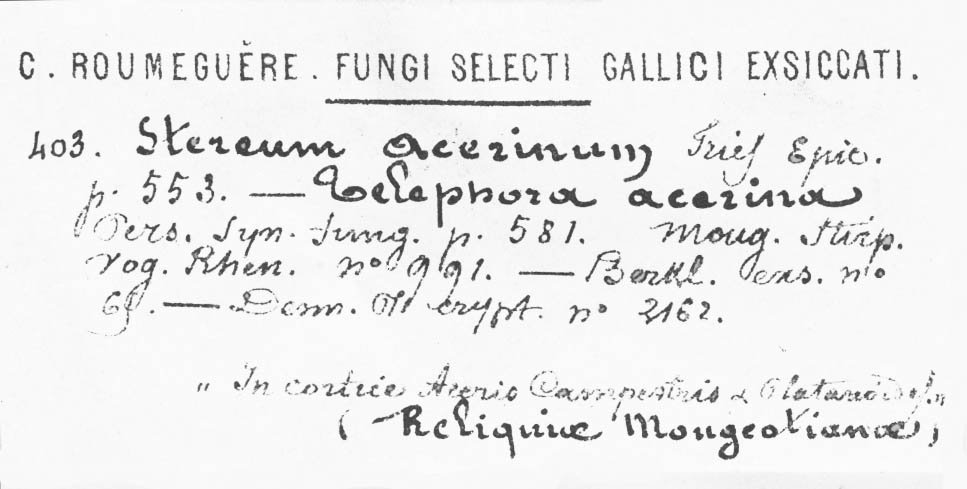 C. ROUMEGUÈRE. FUNGI SELECTI GALLICI EXSICCATI.
403. Stereum acerinum Fries Epic.
p. 553. — Telephora acerina
Pers. Syn. fung. p. 581. Moug. Stirp.
Vog. Rhen. no 991. — Berkl. exs. no
— Desm. crypt. no 2162.
„ In cortice Aceris Campestris & Platanoides. „
( Reliquiæ Mougeotianæ )